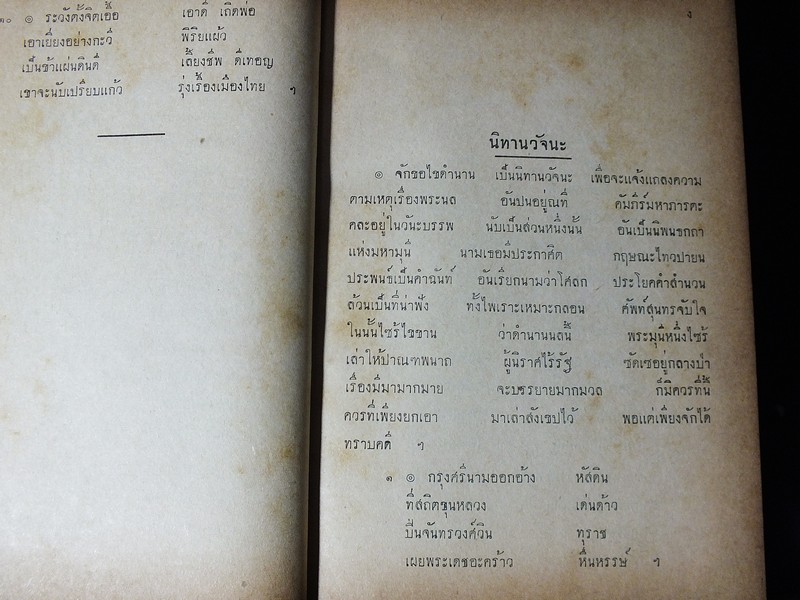 ๓๐ ๏ ระวังตั้งจิตเอื้อ เอาดี เถิดพ่อ
เอาเยี่ยงอย่างกะวี พิริยแผ้ว
เป็นข้าแผ่นดินดี เลี้ยงชีพ ดีเทอญ
เขาจะนับเปรียบแก้ว รุ่งเรืองเมืองไทย ฯ
ง
นิทานวัจนะ
๏ จักขอไขตำนาน เป็นนิทานวัจนะ เพื่อจะแจ้งแถลงความ
ตามเหตุเรื่องพระนล อันปนอยู่ณที่ คัมภีร์มหาภารตะ
คละอยู่ในวันะบรรพ นับเป็นส่วนหนึ่งนั้น อันเป็นนิพนธกถา
แห่งมหามุนี นามเธอมีประกาศิต กฤษณะไทวปายน
ประพนธ์เป็นคำฉันท์ อันเรียกนามว่าโศลก ประโยคคำสำนวน
ล้วนเป็นที่น่าฟัง ทั้งไพเราะเหมาะกลอน ศัพท์สุนทรจับใจ
ในนั้นไซร้ไขขาน ว่าตำนานนลนี้ พระมุนีหนึ่งไซร้
เล่าให้ปาณฑพนาถ ผู้นิราศไร้รัฐ ซัดเซอยู่กลางป่า
เรื่องมีมามากมาย จะบรรยายมากมวล ก็มิควรที่นี้
ควรที่เพียงยกเอา มาเล่าสังเขปไว้ พอแต่เพียงจักได้
ทราบคดี ฯ
๑ ๏ กรุงศรีนามออกอ้าง หัสดิน
ที่สถิตขุนหลวง เด่นด้าว
ปิ่นจันทรวงศ์วิน ทุราช
เผยพระเดชอะคร้าว หื่นหรรษ์ ฯ